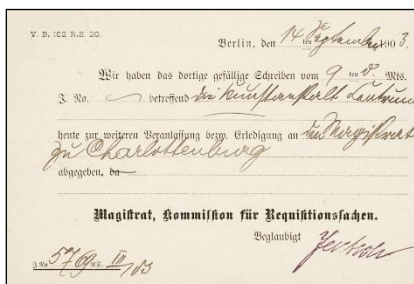 V. B. 102 R.S. 2G.
Berlin, den 14ten September 1903.
Wir haben das dortige gefällige Schreiben vom 9ten d. Mts.
J. No. betreffend die Kunstanstalt
heute zur weiteren Veranlassung bezw. Erledigung an den Magistrat
zu Charlottenburg
abgegeben, da
Magistrat, Kommission für Requisitionssachen.
Beglaubigt
J No 5769 R.S. III/03